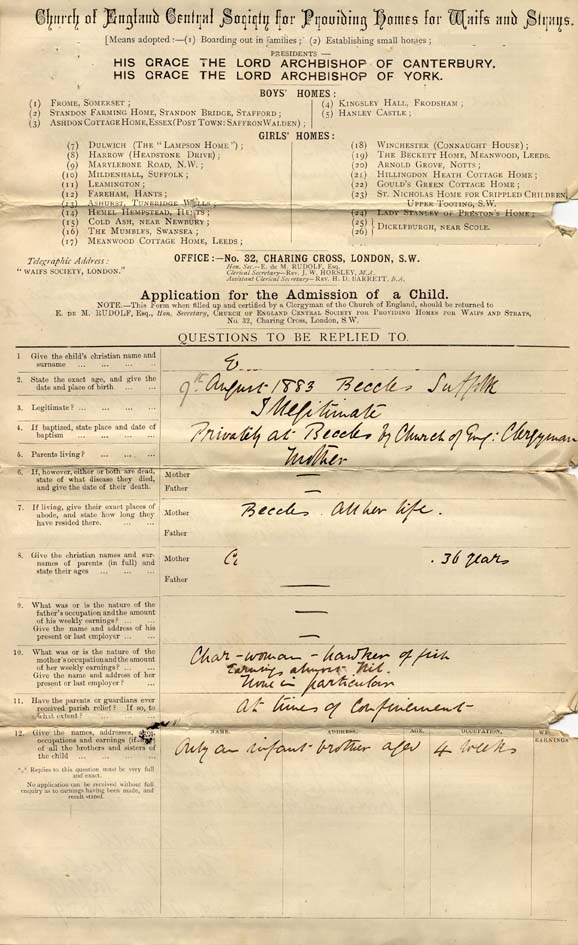 Church of England Central Society for Providing Homes for Waifs and Strays.
[Means adopted:—(1) Boarding out in families; (2) Establishing small homes;
PRESIDENTS —
HIS GRACE THE LORD ARCHBISHOP OF CANTERBURY.
HIS GRACE THE LORD ARCHBISHOP OF YORK.
BOYS' HOMES:
(1) FROME, SOMERSET;
(2) STANDON FARMING HOME, STANDON BRIDGE, STAFFORD;
(3) ASHDON COTTAGE HOME, ESSEX (POST TOWN: SAFFRON WALDEN);
(4) KINGSLEY HALL, FRODSHAM;
(5) HANLEY CASTLE;
GIRLS' HOMES:
(7) DULWICH (THE "LAMPSON HOME");
(8) HARROW (HEADSTONE DRIVE);
(9) MARYLEBONE ROAD, N.W.;
(10) MILDENHALL, SUFFOLK;
(11) LEAMINGTON;
(12) FAREHAM, HANTS;
(13) ASHURST, TUNBRIDGE WELLS;
(14) HEMEL HEMPSTEAD, HERTS;
(15) COLD ASH, NEAR NEWBURY;
(16) THE MUMBLES, SWANSEA;
(17) MEANWOOD COTTAGE HOME, LEEDS;
(18) WINCHESTER (CONNAUGHT HOUSE);
(19) THE BECKETT HOME, MEANWOOD, LEEDS.
(20) ARNOLD GROVE, NOTTS;
(21) HILLINGDON HEATH COTTAGE HOME;
(22) GOULD'S GREEN COTTAGE HOME;
(23) ST. NICHOLAS HOME FOR CRIPPLED CHILDREN
UPPER TOOTING, S.W.
(24) LADY STANLEY OF PRESTON'S HOME;
(25)
(26) } DICKLEBURGH, NEAR SCOLE.
Telegraphic Address:
"WAIFS SOCIETY, LONDON."
OFFICE:—No. 32, CHARING CROSS, LONDON, S.W.
Hon. Sec.—E. DE M. RUDOLF, Esq.
Clerical Secretary—REV. J. W. HORSLEY, M.A.
Assistant Clerical Secretary—REV. H. D. BARRETT, B.A.
Application for the Admission of a Child.
NOTE.—This Form when filled up and certified by a Clergyman of the Church of England, should be returned to
E. DE M. RUDOLF, Esq., Hon. Secretary, CHURCH OF ENGLAND CENTRAL SOCIETY FOR PROVIDING HOMES FOR WAIFS AND STRAYS,
No. 32, Charing Cross, London, S.W.
QUESTIONS TO BE REPLIED TO.
1 Give the child's christian name and
surname ... ... ... ...
E
2. State the exact age, and give the
date and place of birth ... ...
9th August 1883 Beccles Suffolk
3. Legitimate? ... ... ... ...
Illegitimate
4. If baptized, state place and date of
baptism ... ... ... ...
Privately at Beccles by Church of Eng: Clergyman
5. Parents living? ... ... ...
Mother
6. If, however, either or both are dead,
state of what disease they died,
and give the date of their death.
Mother —
Father —
7. If living, give their exact places of
abode, and state how long they
have resided there. ... ...
Mother Beccles. All her life.
Father
8. Give the christian names and sur-
names of parents (in full) and
state their ages ... ... ...
Mother C . 36 years
Father —
9. What was or is the nature of the
father's occupation and the amount
of his weekly earnings? ... ...
Give the name and address of his
present or last employer ... ...
—
—
10. What was or is the nature of the
mother's occupation and the amount
of her weekly earnings? ... ...
Give the name and address of her
present or last employer? ...
Char-woman - hawker of fish
Earnings almost Nil.
None in particular
11. Have the parents or guardians ever
received parish relief? If so, to
what extent? ... ... ...
At times of Confinement
12. Give the names, addresses, ages,
occupations and earnings (if any)
of all the brothers and sisters of
the child ... ... ... ...
NAME. ADDRESS. AGE. OCCUPATION. WE
EARNINGS
Only an infant brother aged 4 weeks
*** Replies to this question must be very full
and exact.
No application can be received without full
enquiry as to earnings having been made, and
result stated.